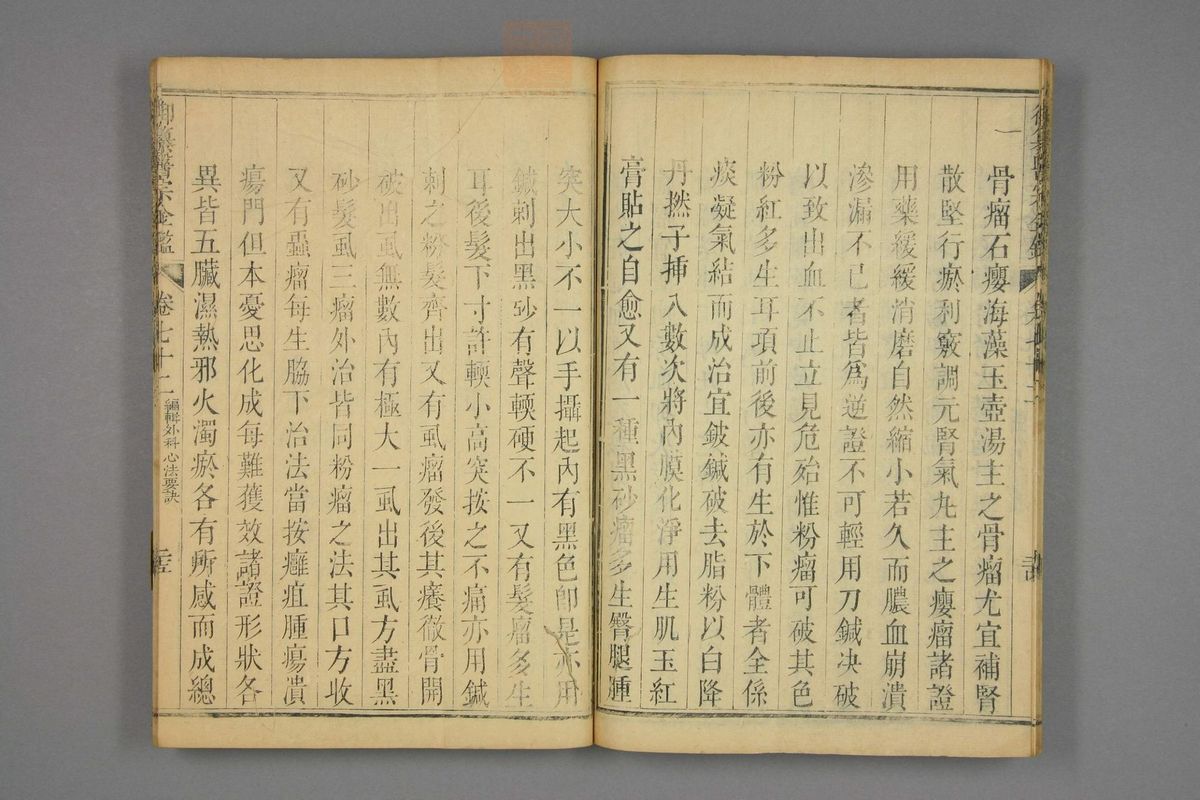 骨瘤石癭海藻玉壺湯主之骨瘤尤宜補腎
散堅行瘀利竅調元腎氣丸主之癭瘤諸證
用藥緩緩消磨自然縮小若久而膿血崩潰
滲漏不已者皆爲逆證不可輕用刀鍼决破
以致出血不止立見危殆惟粉瘤可破其色
粉紅多生耳項前後亦有生於下體者全係
痰凝氣結而成治宜鈹鍼破去脂粉以白降
丹撚子插入數次將內膜化淨用生肌玉紅
膏貼之自愈又有一種黑砂瘤多生臀腿腫
突大小不一以手攝起內有黑色卽是亦用
鍼刺出黑砂有聲輭硬不一又有髮瘤多生
耳後髮下寸許輭小高突按之不痛亦用鍼
刺之粉髮齊出又有虱瘤發後其癢徹骨開
破出虱無數內有極大一虱出其虱方盡黑
砂髮虱三瘤外治皆同粉瘤之法其口方收
又有蟲瘤每生脇下治法當按癰疽腫瘍潰
瘍門但本憂思化成每難獲效諸證形狀各
異皆五臟濕熱邪火濁瘀各有所感而成總
御纂醫宗金鑑 卷七十二 編輯外科心法要訣